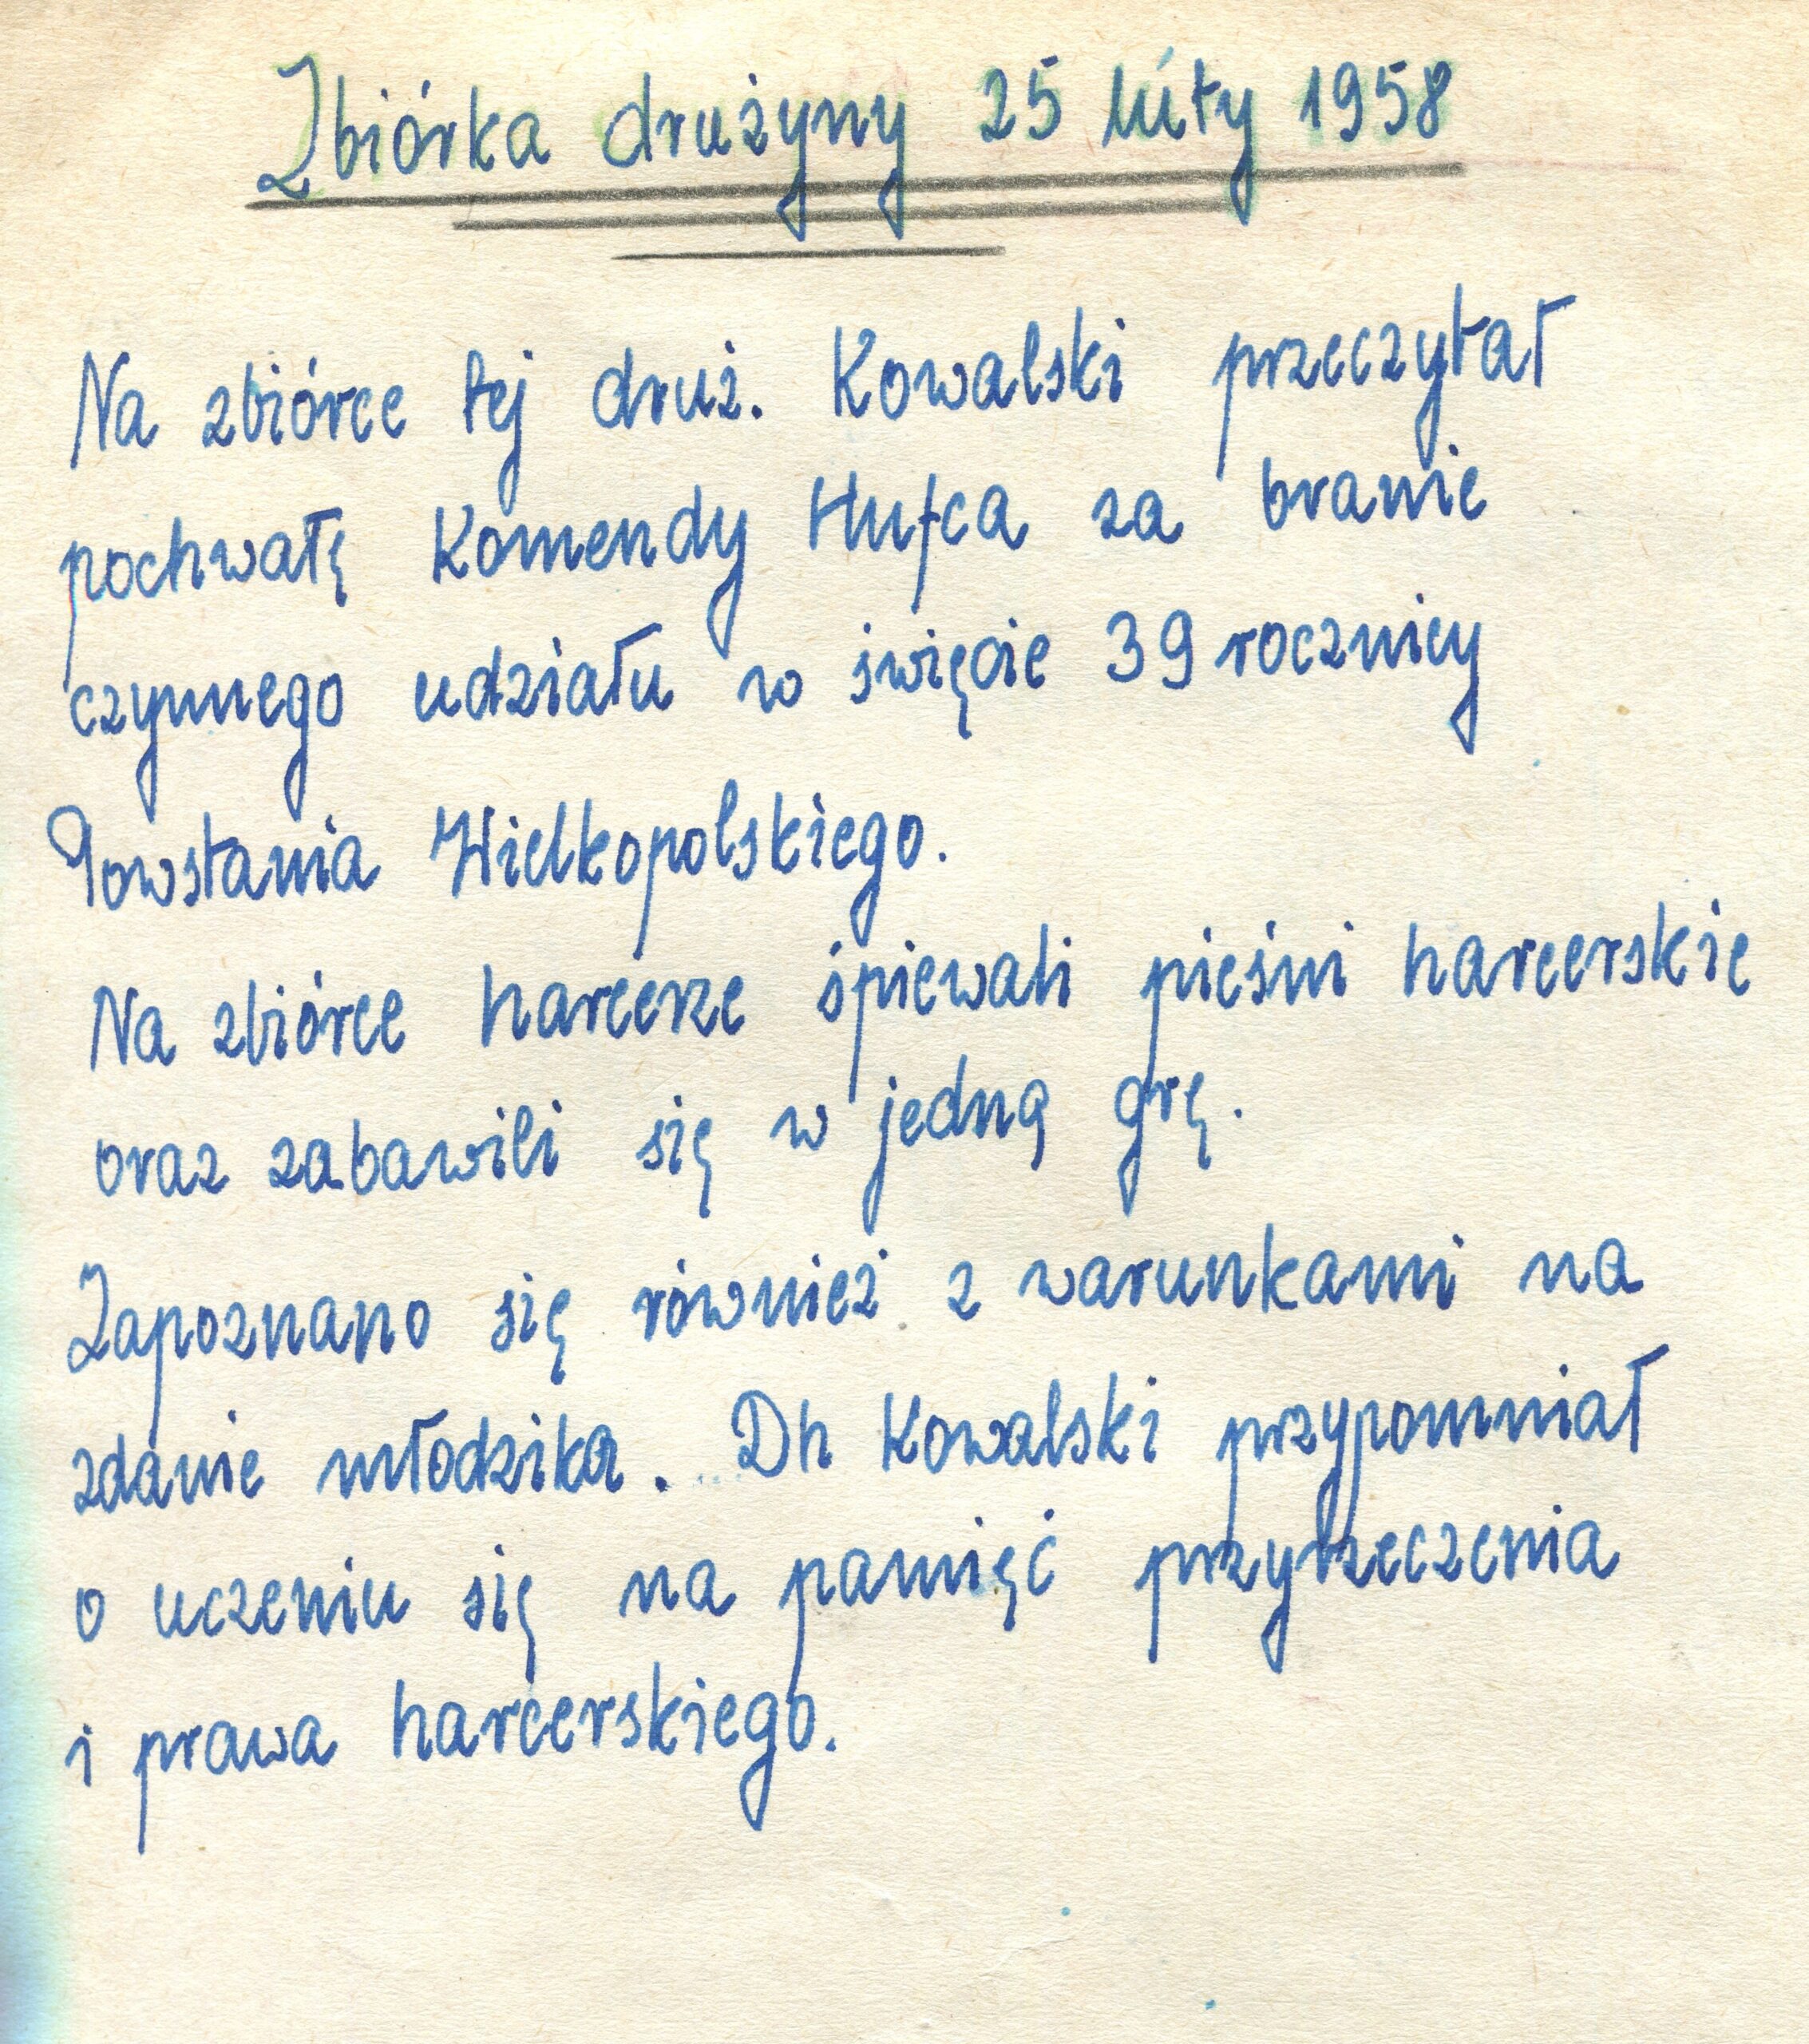 Zbiórka drużyny 25 luty 1958
Na zbiórce tej druż. Kowalski przeczytał
pochwałę Komendy Hufca za branie
czynnego udziału w święcie 39 rocznicy
Powstania Wielkopolskiego.
Na zbiórce harcerze śpiewali pieśni harcerskie
oraz zabawili się w jedną grę.
Zapoznano się również z warunkami na
zdanie młodzika. Dh Kowalski przypomniał
o uczeniu się na pamięć przyrzeczenia
i prawa harcerskiego.